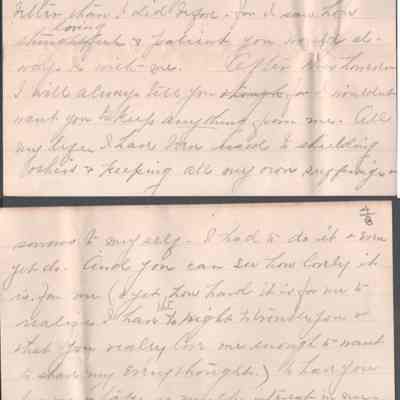 better than I did before - for I saw how
loving
thoughtful & patient you would al-
ways be with me. After this however
I will always tell you for I wouldn't
want you to keep anything from me. All
my life I have been used to shielding
others & keeping all my own sufferings &
4/8
sorrows to myself - I had to do it & even
yet do. And you can see how lovely it
is for me (& yet how hard it is for me to
realize I have the right to trouble you &
that you really love me enough to want
to share my every thought.) to have you
take so much interest in me -